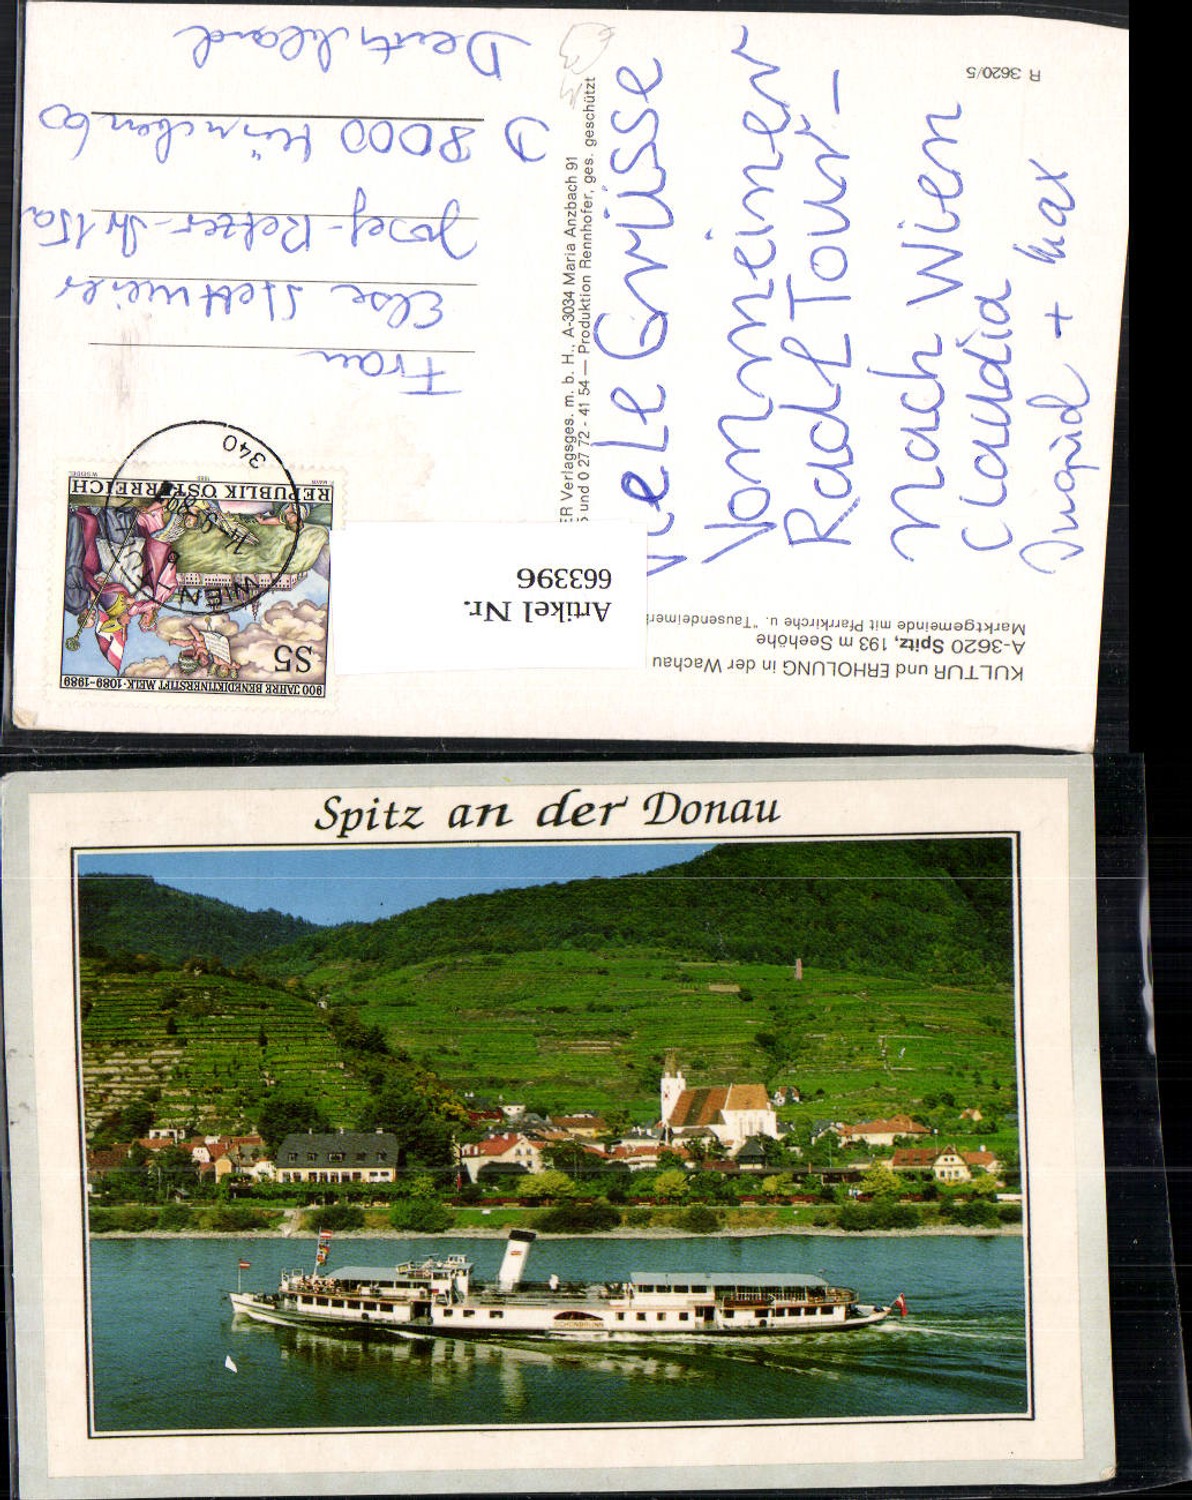 R 3620/5
KULTUR und ERHOLUNG in der Wachau
A-3620 Spitz, 193 m Seehöhe
Marktgemeinde mit Pfarrkirche u. "Tausendeimer
Viele Grüsse
von einer
Radl Tour -
nach Wien
Claudia
Ingrid + Max
ER Verlagsges. m. b. H., A-3034 Maria Anzbach 91
und 0 27 72 - 41 54 — Produktion Rennhofer, ges. geschützt
Artikel Nr.
663396
900 JAHRE BENEDIKTINERSTIFT MELK · 1089-1989
S5
REPUBLIK ÖSTERREICH
WIEN
340
Frau
Else Stettmeier
Josef-Retzer-Str 15a
D 8000 München 60
Deutschland
Spitz an der Donau
SCHÖNBRUNN